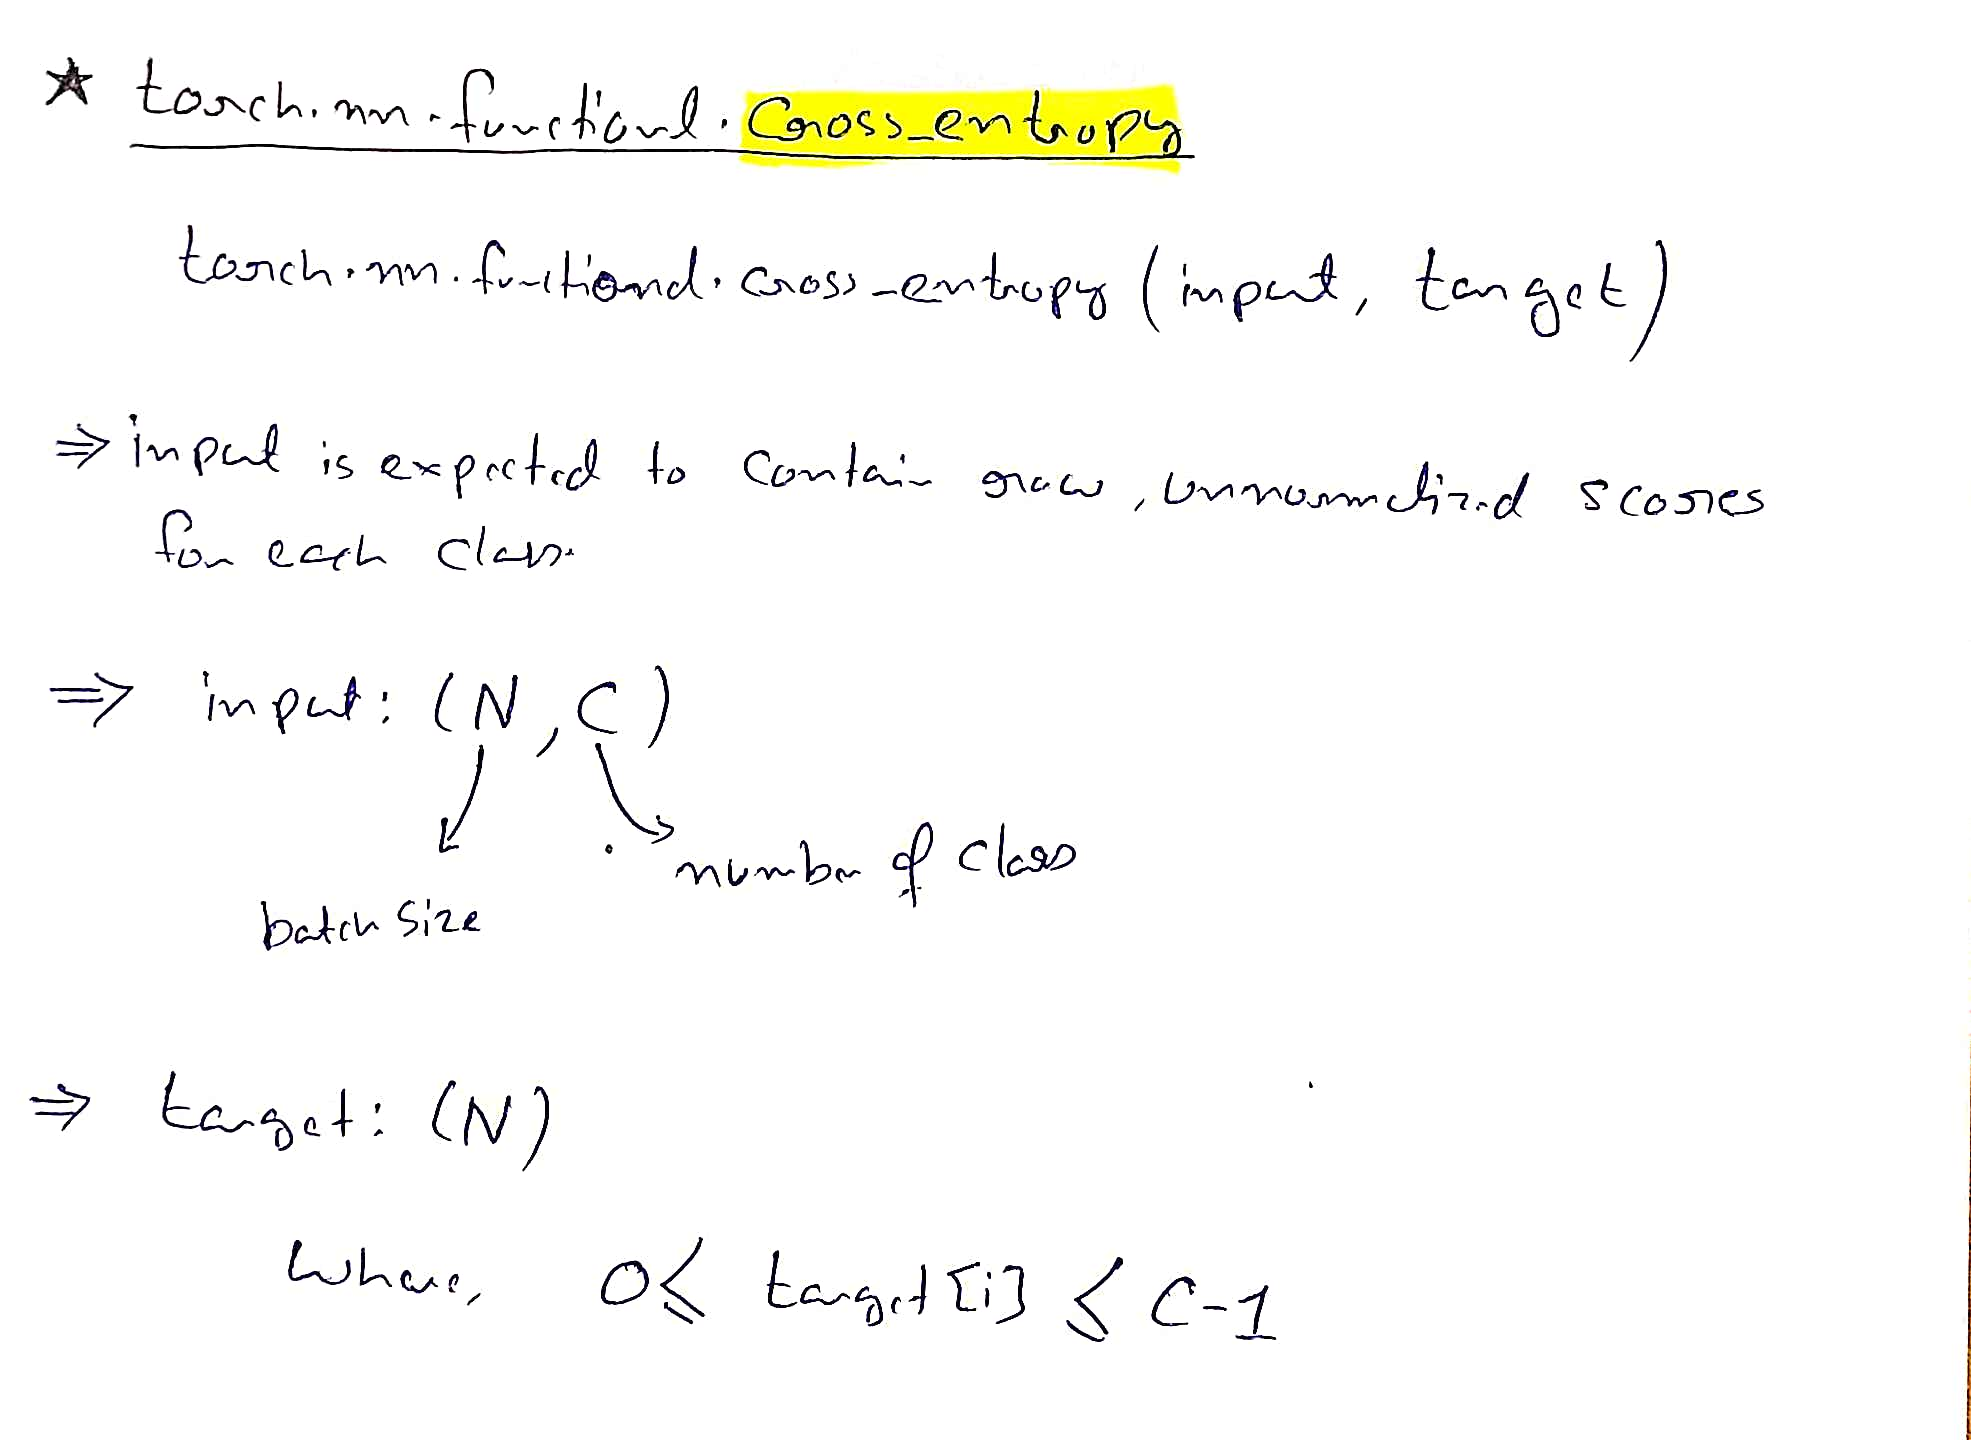 ★ torch.nn.functional.Cross_entropy
torch.nn.functional.cross_entropy (input, target)
⇒ input is expected to contain raw, unnormalized scores
for each class.
⇒ input: (N, C)
number of class
batch size
⇒ target: (N)
where, 0 ≤ target[i] ≤ C-1